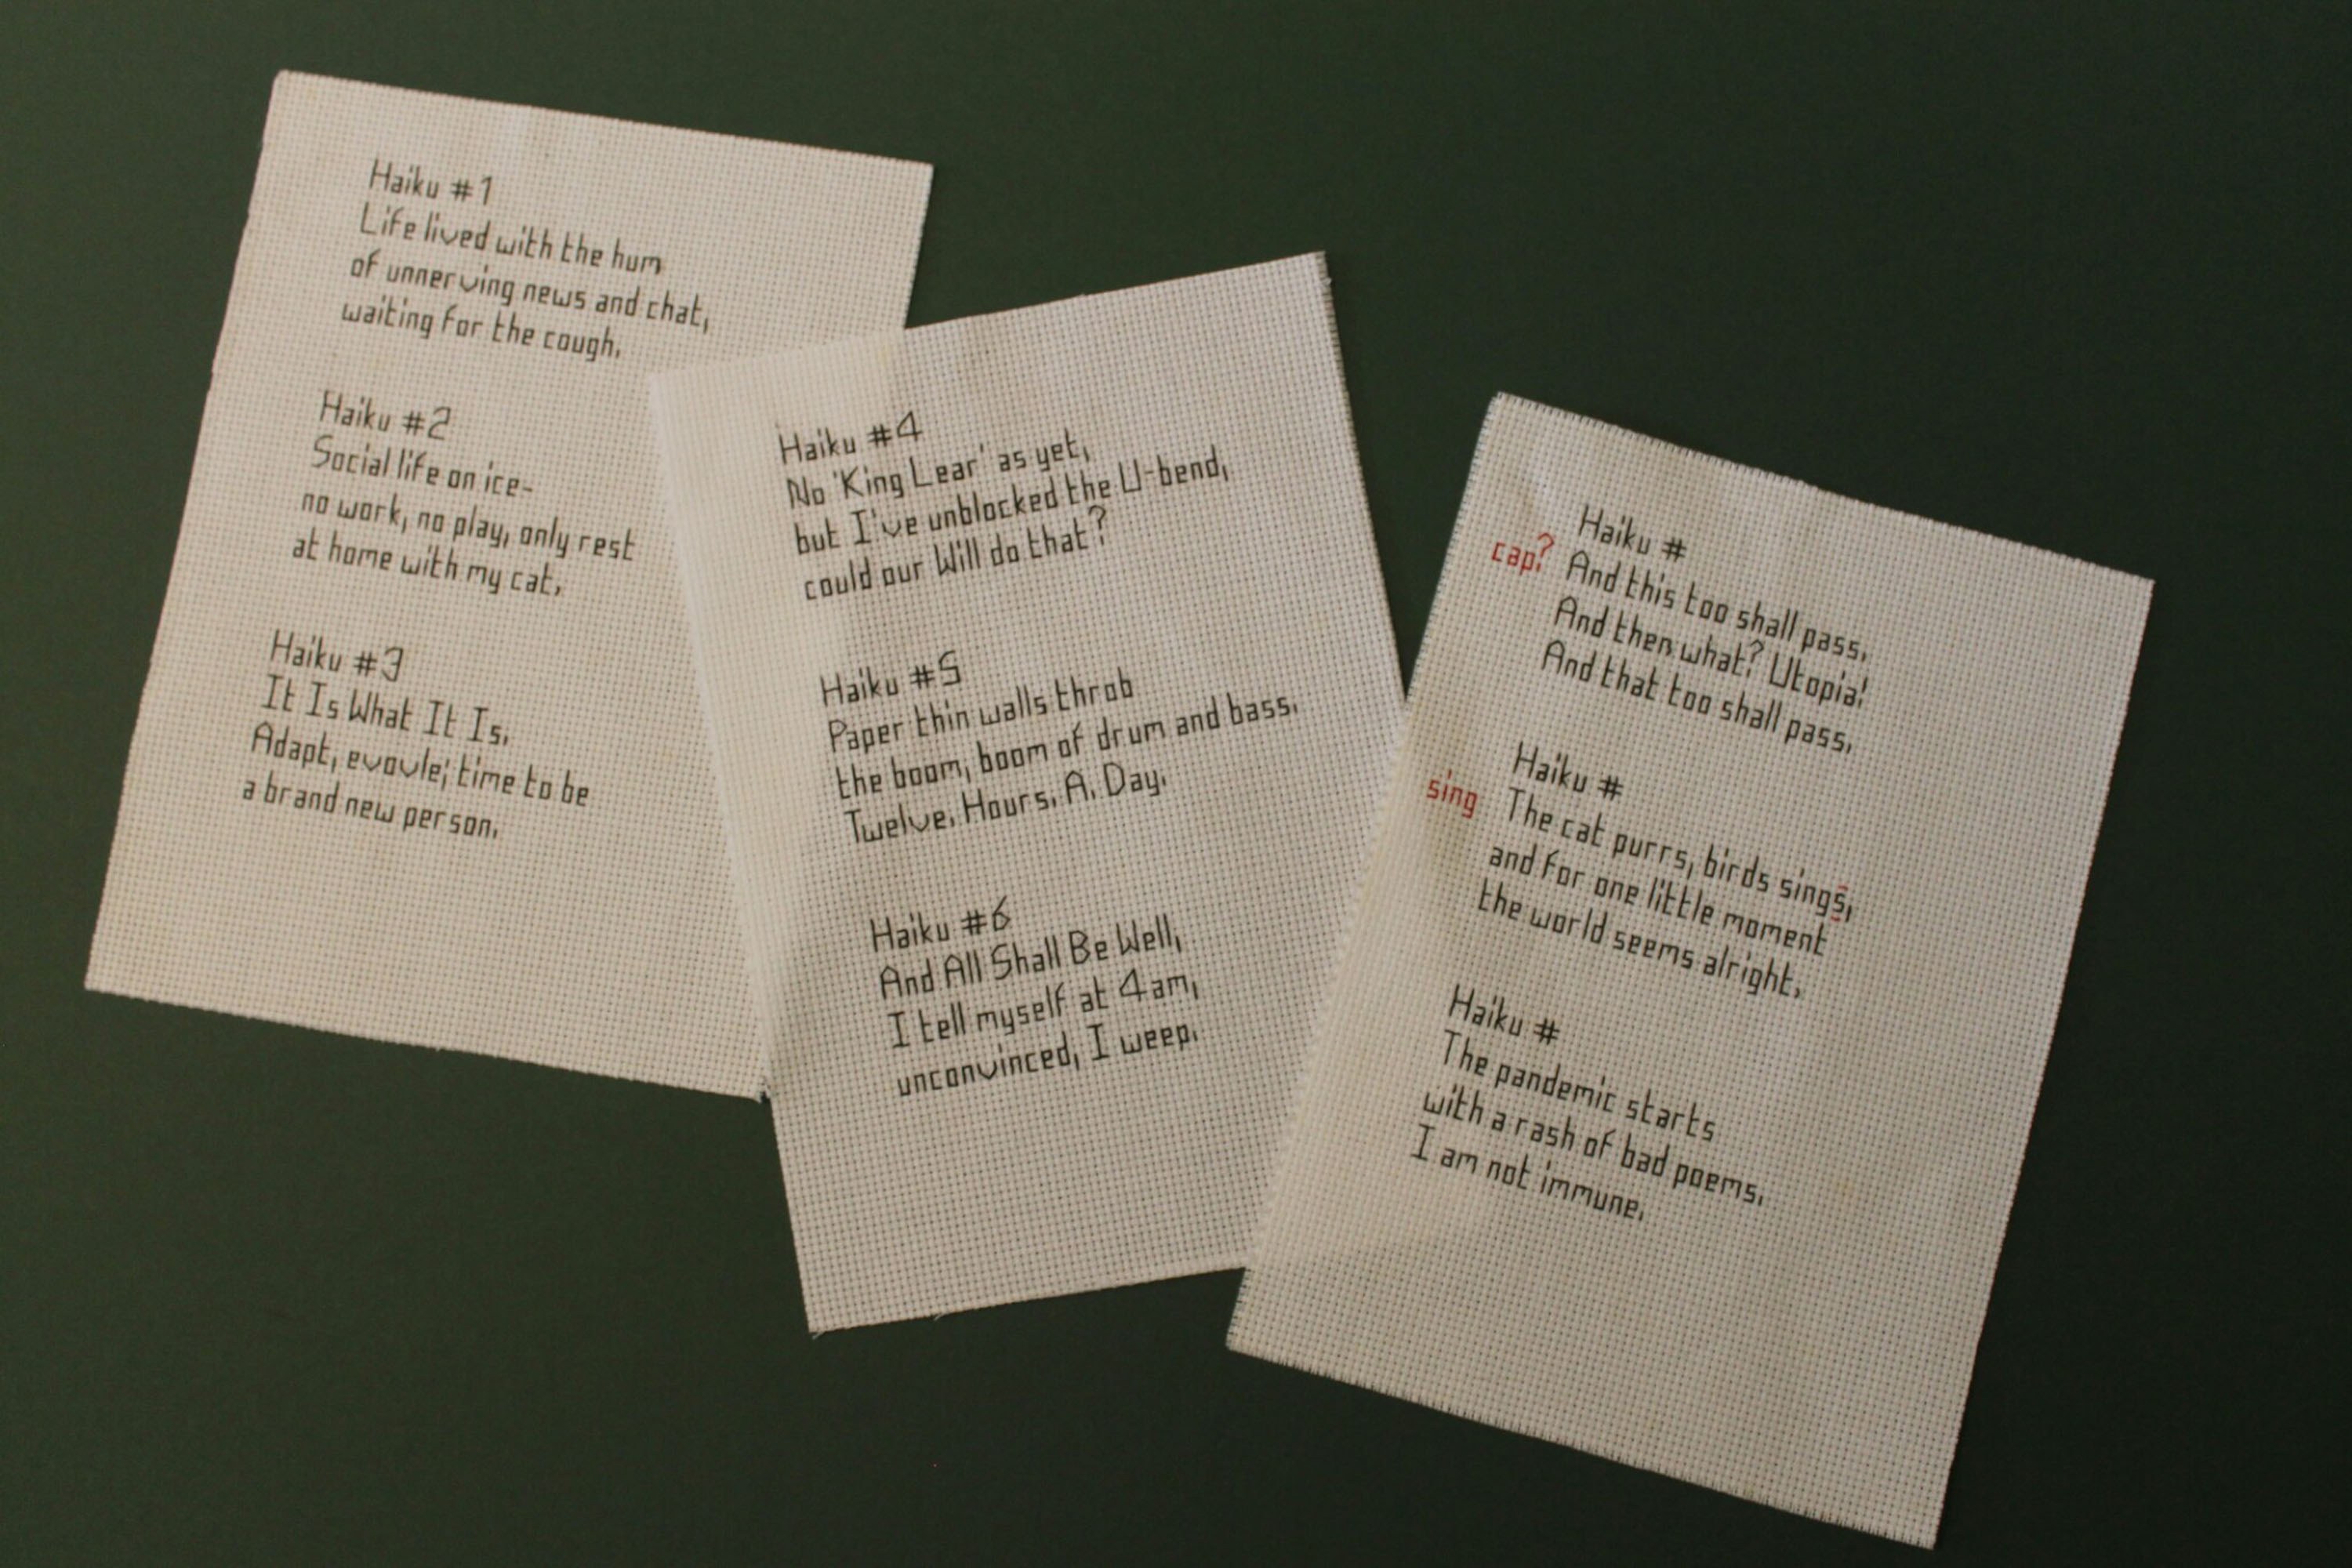 Haiku #1
Life lived with the hum
of unnerving news and chat,
waiting for the cough.
Haiku #2
Social life on ice-
no work, no play, only rest
at home with my cat.
Haiku #3
It Is What It Is.
Adapt, evovle; time to be
a brand new person.
Haiku #4
No 'King Lear' as yet,
but I've unblocked the U-bend,
could our Will do that?
Haiku #5
Paper thin walls throb
the boom, boom of drum and bass.
Twelve. Hours. A. Day.
Haiku #6
And All Shall Be Well,
I tell myself at 4am,
unconvinced, I weep.
Haiku #
cap? And this too shall pass.
And then what? Utopia!
And that too shall pass.
Haiku #
sing The cat purrs, birds sings,
and for one little moment
the world seems alright.
Haiku #
The pandemic starts
with a rash of bad poems.
I am not immune.